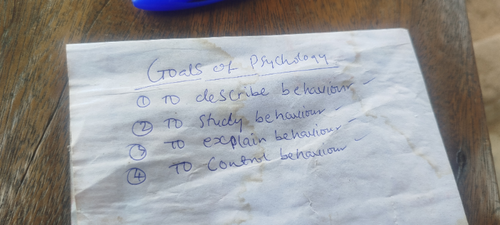 Goals of Psychology
① To describe behaviour -
② To study behaviour -
③ To explain behaviour -
④ To control behaviour -